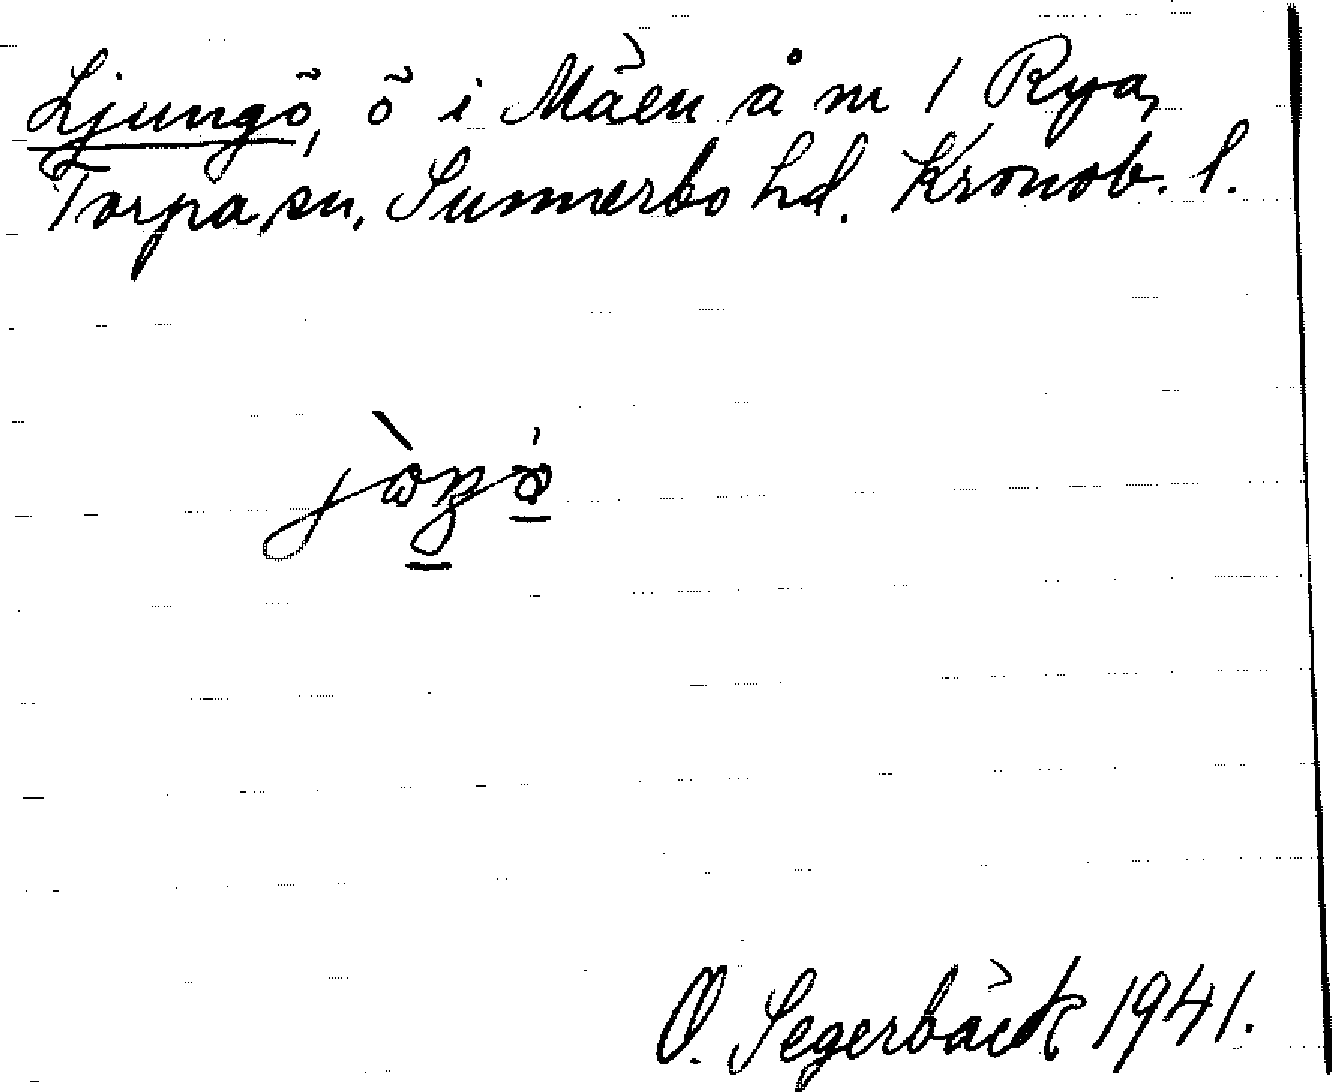 Ljungö, ö i Mäen å m 1 Rya,
Torpa sn, Sunnerbo hd. Kronob. l.
O. Segerbäck 1941.